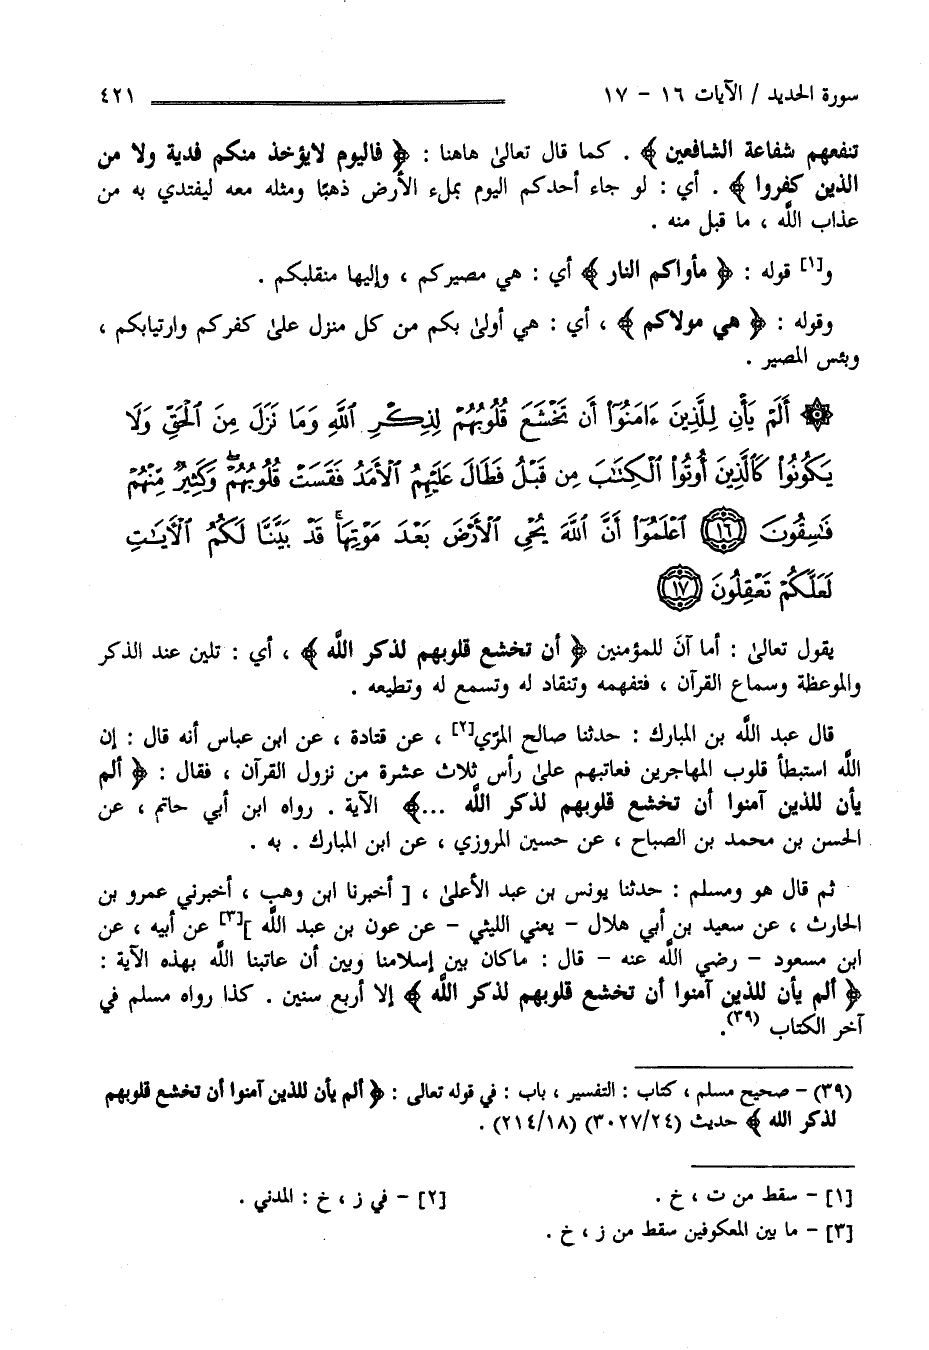 سورة الحديد / الآيات ١٦ - ١٧ ٤٢١
تنفعهم شفاعة الشافعين ﴾ . كما قال تعالىٰ هاهنا : ﴿ فاليوم لايؤخذ منكم فدية ولا من
الذين كفروا ﴾ . أي : لو جاء أحدكم اليوم بملء الأرض ذهبًا ومثله معه ليفتدي به من
عذاب اللَّه ، ما قبل منه .
و[١] قوله : ﴿ مأواكم النار ﴾ أي : هي مصيركم ، وإليها منقلبكم .
وقوله : ﴿ هي مولاكم ﴾ ، أي : هي أولىٰ بكم من كل منزل علىٰ كفركم وارتيابكم ،
وبئس المصير .
۞ أَلَمْ يَأْنِ لِلَّذِينَ ءَامَنُوٓا۟ أَن تَخْشَعَ قُلُوبُهُمْ لِذِكْرِ ٱللَّهِ وَمَا نَزَلَ مِنَ ٱلْحَقِّ وَلَا
يَكُونُوا۟ كَٱلَّذِينَ أُوتُوا۟ ٱلْكِتَٰبَ مِن قَبْلُ فَطَالَ عَلَيْهِمُ ٱلْأَمَدُ فَقَسَتْ قُلُوبُهُمْ ۖ وَكَثِيرٌ مِّنْهُمْ
فَٰسِقُونَ ﴿١٦﴾ ٱعْلَمُوٓا۟ أَنَّ ٱللَّهَ يُحْىِ ٱلْأَرْضَ بَعْدَ مَوْتِهَا ۚ قَدْ بَيَّنَّا لَكُمُ ٱلْءَايَٰتِ
لَعَلَّكُمْ تَعْقِلُونَ ﴿١٧﴾
يقول تعالىٰ : أما آنَ للمؤمنين ﴿ أن تخشع قلوبهم لذكر اللَّه ﴾ ، أي : تلين عند الذكر
والموعظة وسماع القرآن ، فتفهمه وتنقاد له وتسمع له وتطيعه .
قال عبد اللَّه بن المبارك : حدثنا صالح المرّي[٢] ، عن قتادة ، عن ابن عباس أنه قال : إن
اللَّه استبطأ قلوب المهاجرين فعاتبهم علىٰ رأس ثلاث عشرة من نزول القرآن ، فقال : ﴿ ألم
يأن للذين آمنوا أن تخشع قلوبهم لذكر اللَّه ...﴾ الآية . رواه ابن أبي حاتم ، عن
الحسن بن محمد بن الصباح ، عن حسين المروزي ، عن ابن المبارك . به .
ثم قال هو ومسلم : حدثنا يونس بن عبد الأعلىٰ ، [ أخبرنا ابن وهب ، أخبرني عمرو بن
الحارث ، عن سعيد بن أبي هلال - يعني الليثي - عن عون بن عبد اللَّه ][٣] عن أبيه ، عن
ابن مسعود - رضي اللَّه عنه - قال : ماكان بين إسلامنا وبين أن عاتبنا اللَّه بهذه الآية :
﴿ ألم يأن للذين آمنوا أن تخشع قلوبهم لذكر اللَّه ﴾ إلا أربع سنين . كذا رواه مسلم في
آخر الكتاب (٣٩).
(٣٩) - صحيح مسلم ، كتاب : التفسير ، باب : في قوله تعالى : ﴿ ألم يأن للذين آمنوا أن تخشع قلوبهم
لذكر الله ﴾ حديث (٣٠٢٧/٢٤) (٢١٤/١٨) .
[١] - سقط من ت ، خ . [٢] - في ز ، خ : المدني .
[٣] - ما بين المعكوفين سقط من ز ، خ .